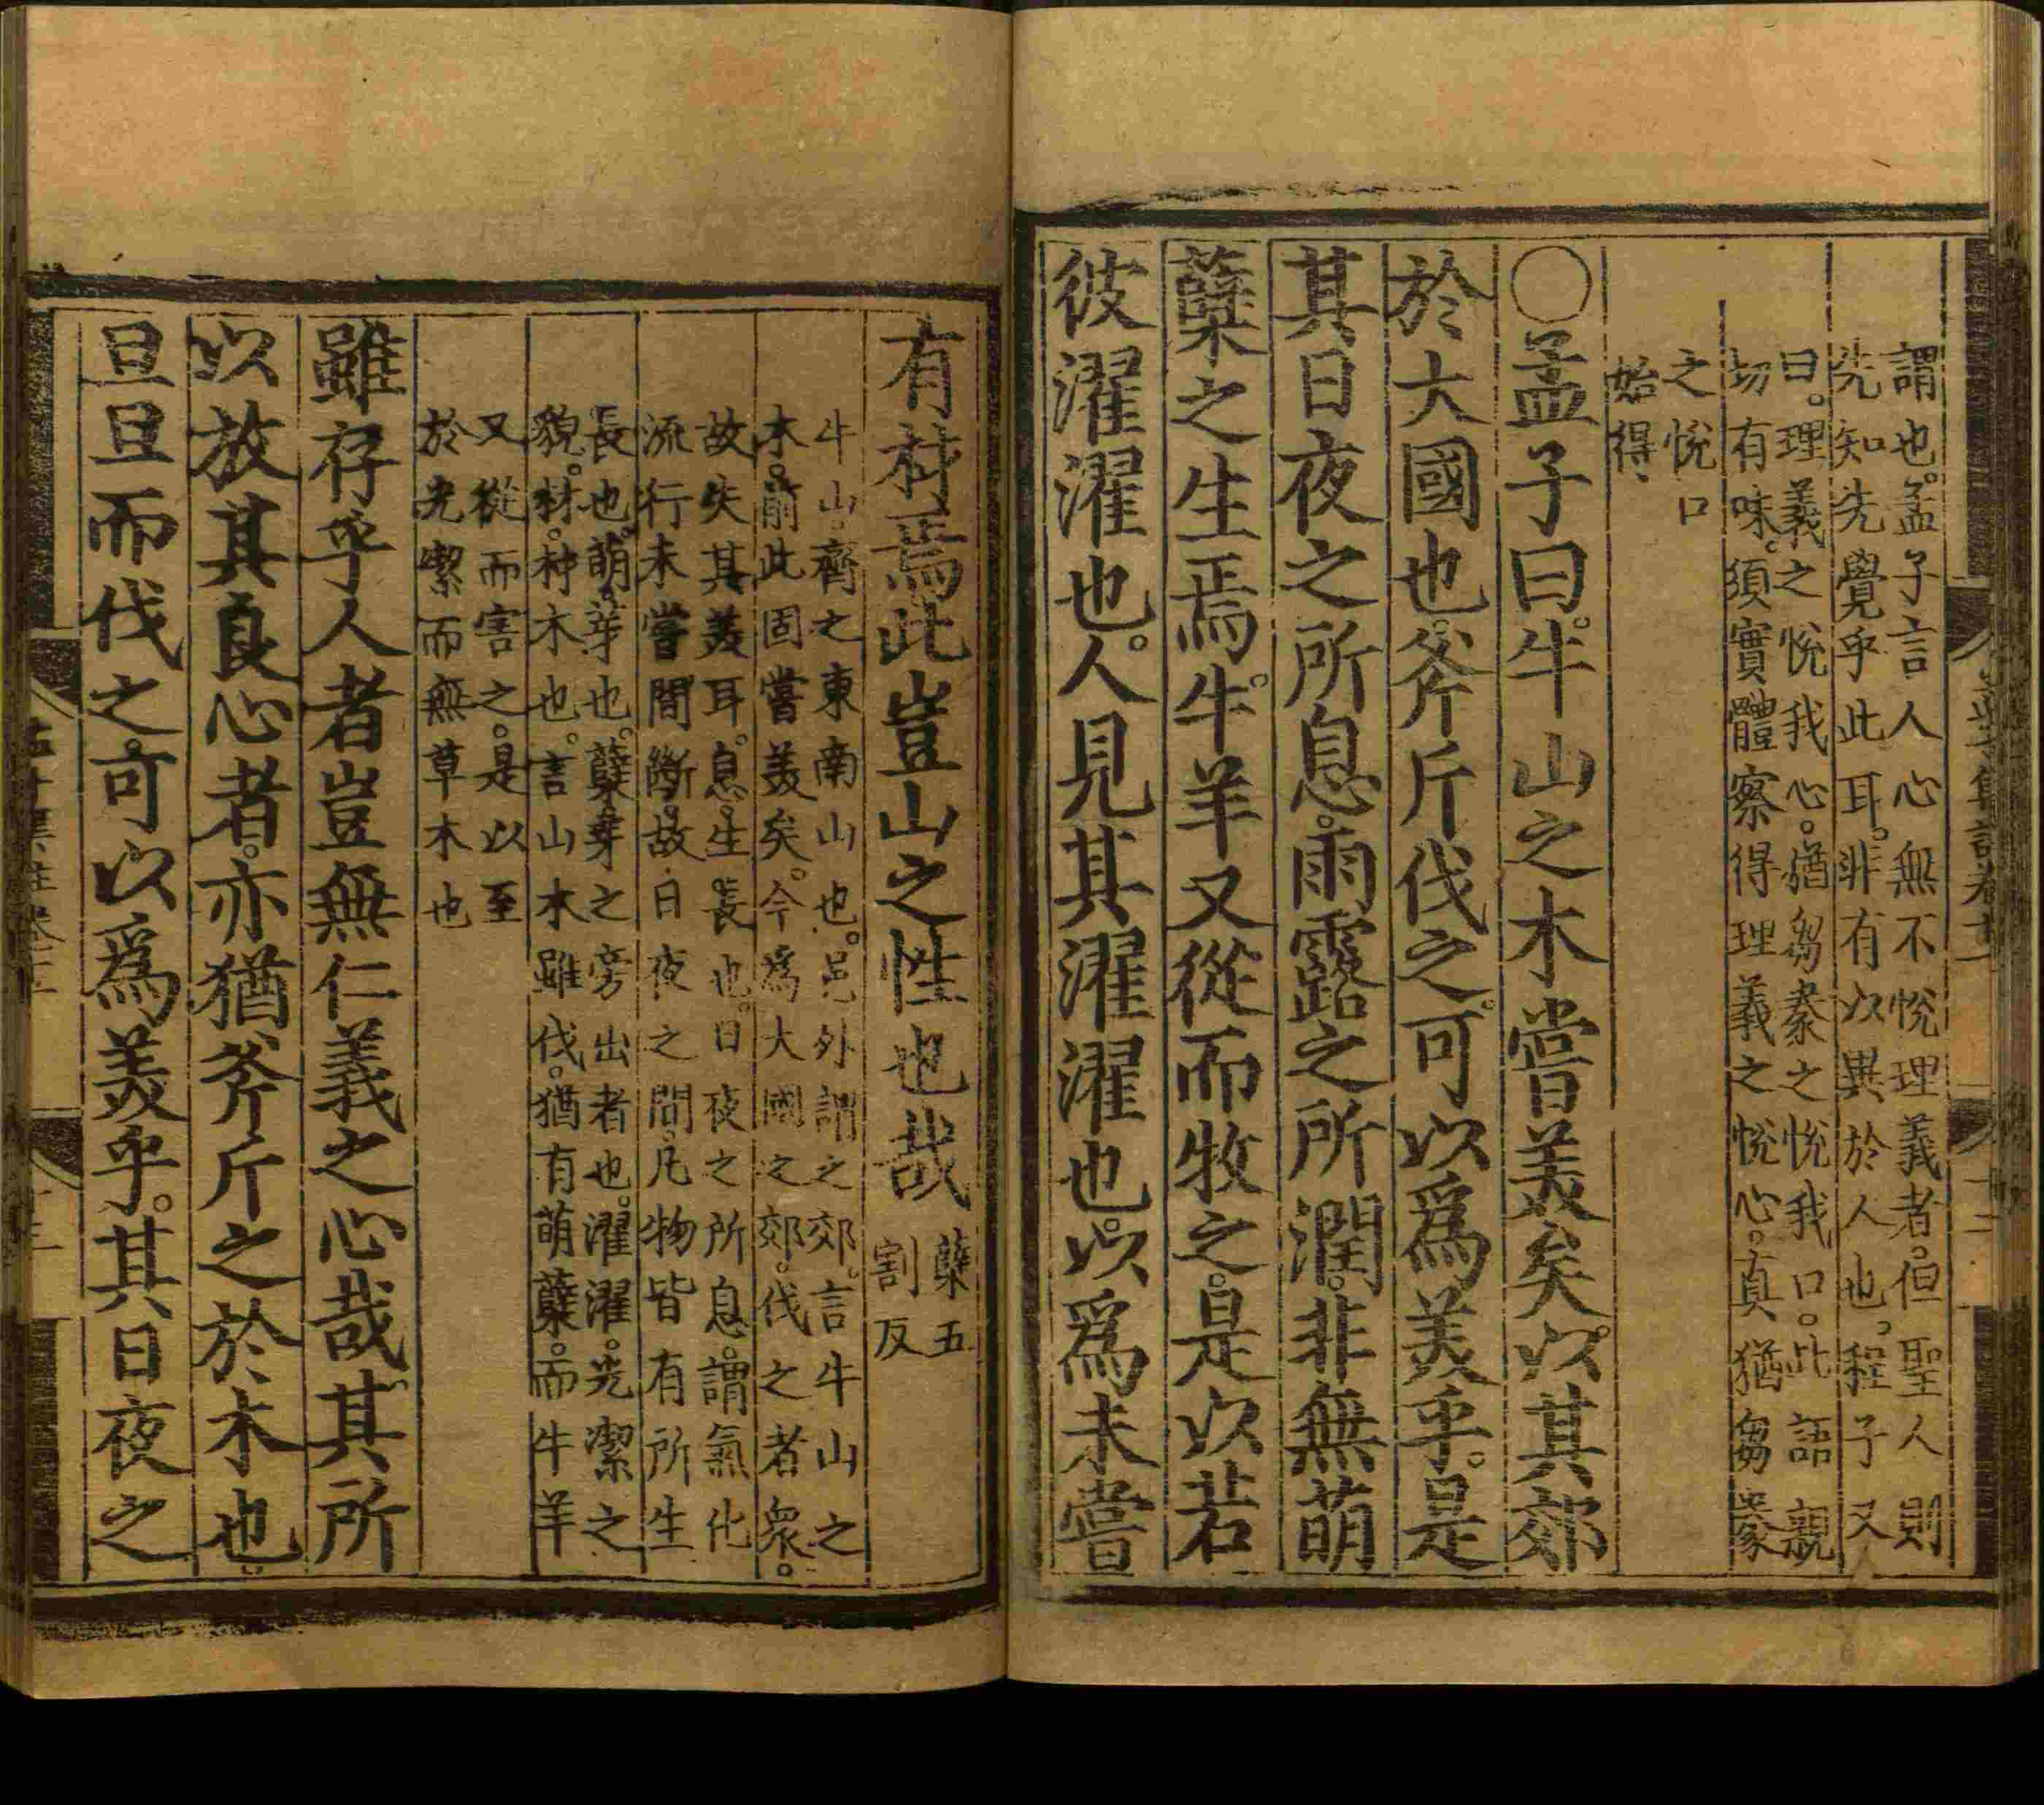 謂也。孟子言人心無不悅理義者。但聖人則
先知先覺乎此耳。非有以異於人也。程子又
曰。理義之悅我心。猶芻豢之悅我口。此語親
切有味。須實體察得理義之悅心。真猶芻豢
之悅口
始得
○孟子曰。牛山之木嘗美矣。以其郊
於大國也。斧斤伐之。可以爲美乎。是
其日夜之所息。雨露之所潤。非無萌
蘖之生焉。牛羊又從而牧之。是以若
彼濯濯也。人見其濯濯也。以爲未嘗
有材焉此豈山之性也哉
蘖五
割反
牛山。齊之東南山也。邑外謂之郊。言牛山之
木。前此固嘗美矣。今爲大國之郊。伐之者衆。
故失其美耳。息。生長也。日夜之所息。謂氣化
流行未嘗間斷。故日夜之間。凡物皆有所生
長也。萌。芽也。蘖。芽之旁出者也。濯濯。光潔之
貌。材。材木也。言山木雖伐。猶有萌蘖。而牛羊
又從而害之。是以至
於光潔而無草木也
雖存乎人者豈無仁義之心哉。其所
以放其良心者。亦猶斧斤之於木也。
旦旦而伐之。可以爲美乎。其日夜之